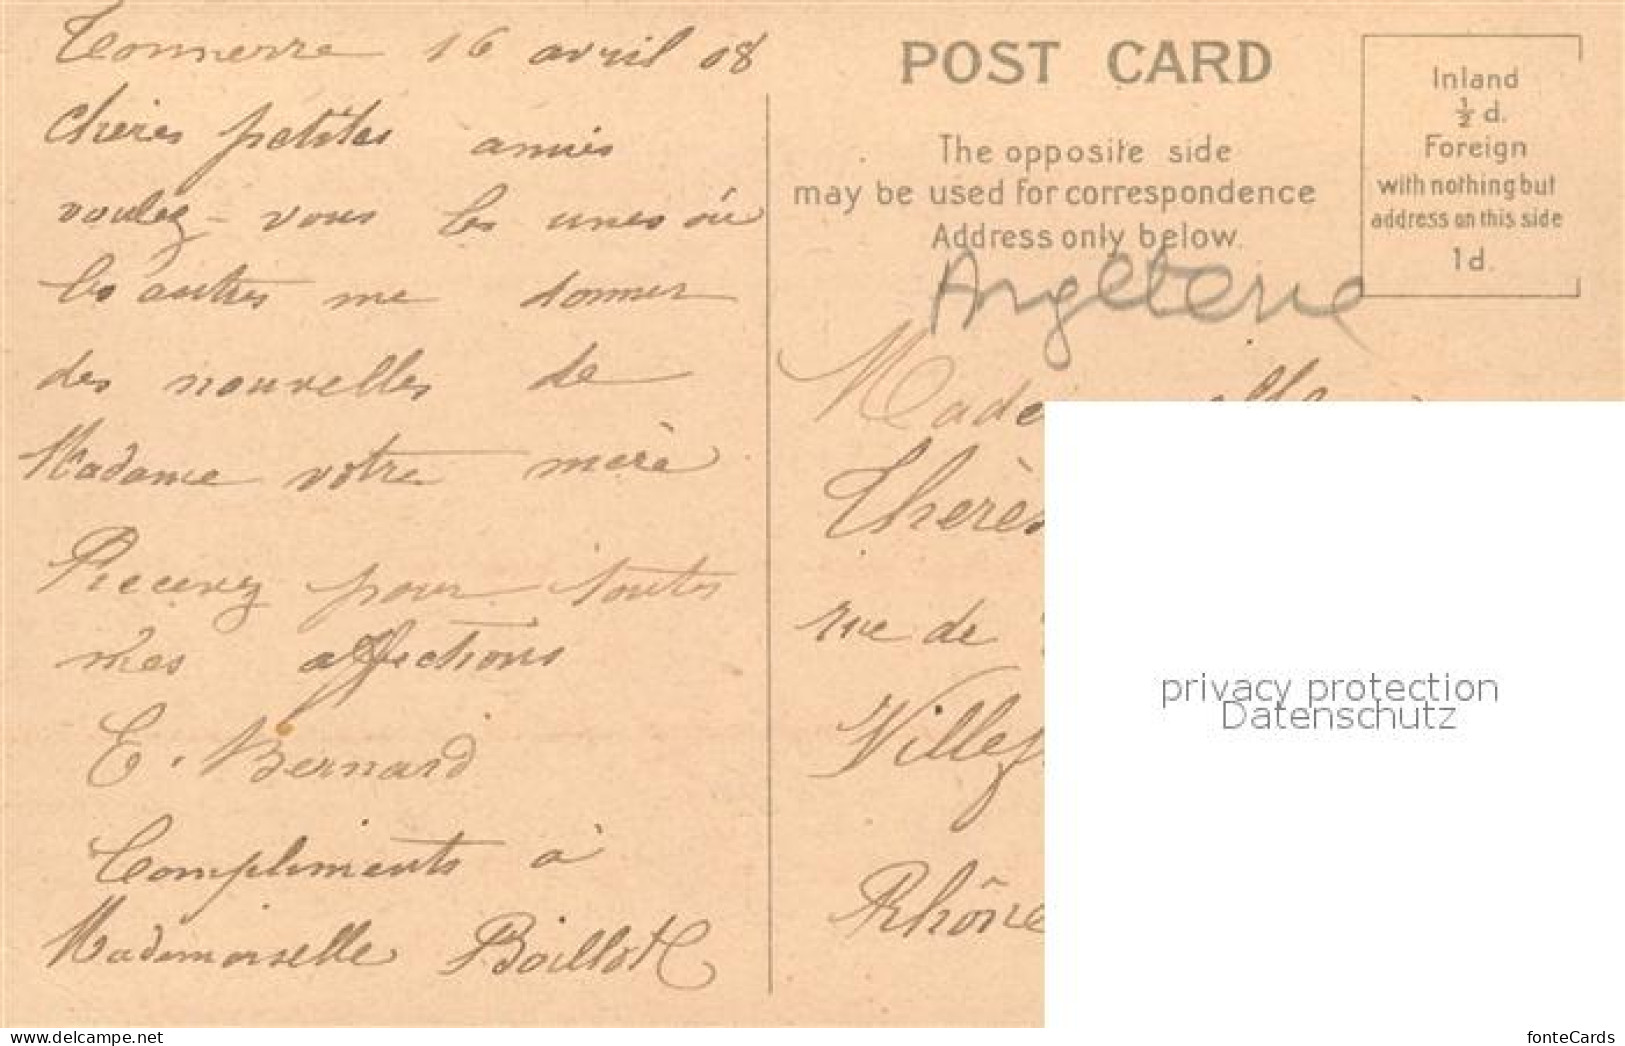 Tonnerre 16 avril 08
chères petites amies
voulez-vous les unes où
les autres me donner
des nouvelles de
Madame votre mère
Recevez pour toutes
mes affections
E. Bernard
Compliments à
Mademoiselle Boillot
POST CARD
The opposite side
may be used for correspondence
Address only below.
Inland
½ d.
Foreign
with nothing but
address on this side
1d.
Angleterre
rue de
Rhône
privacy protection
Datenschutz
www.delcampe.net
fonteCards